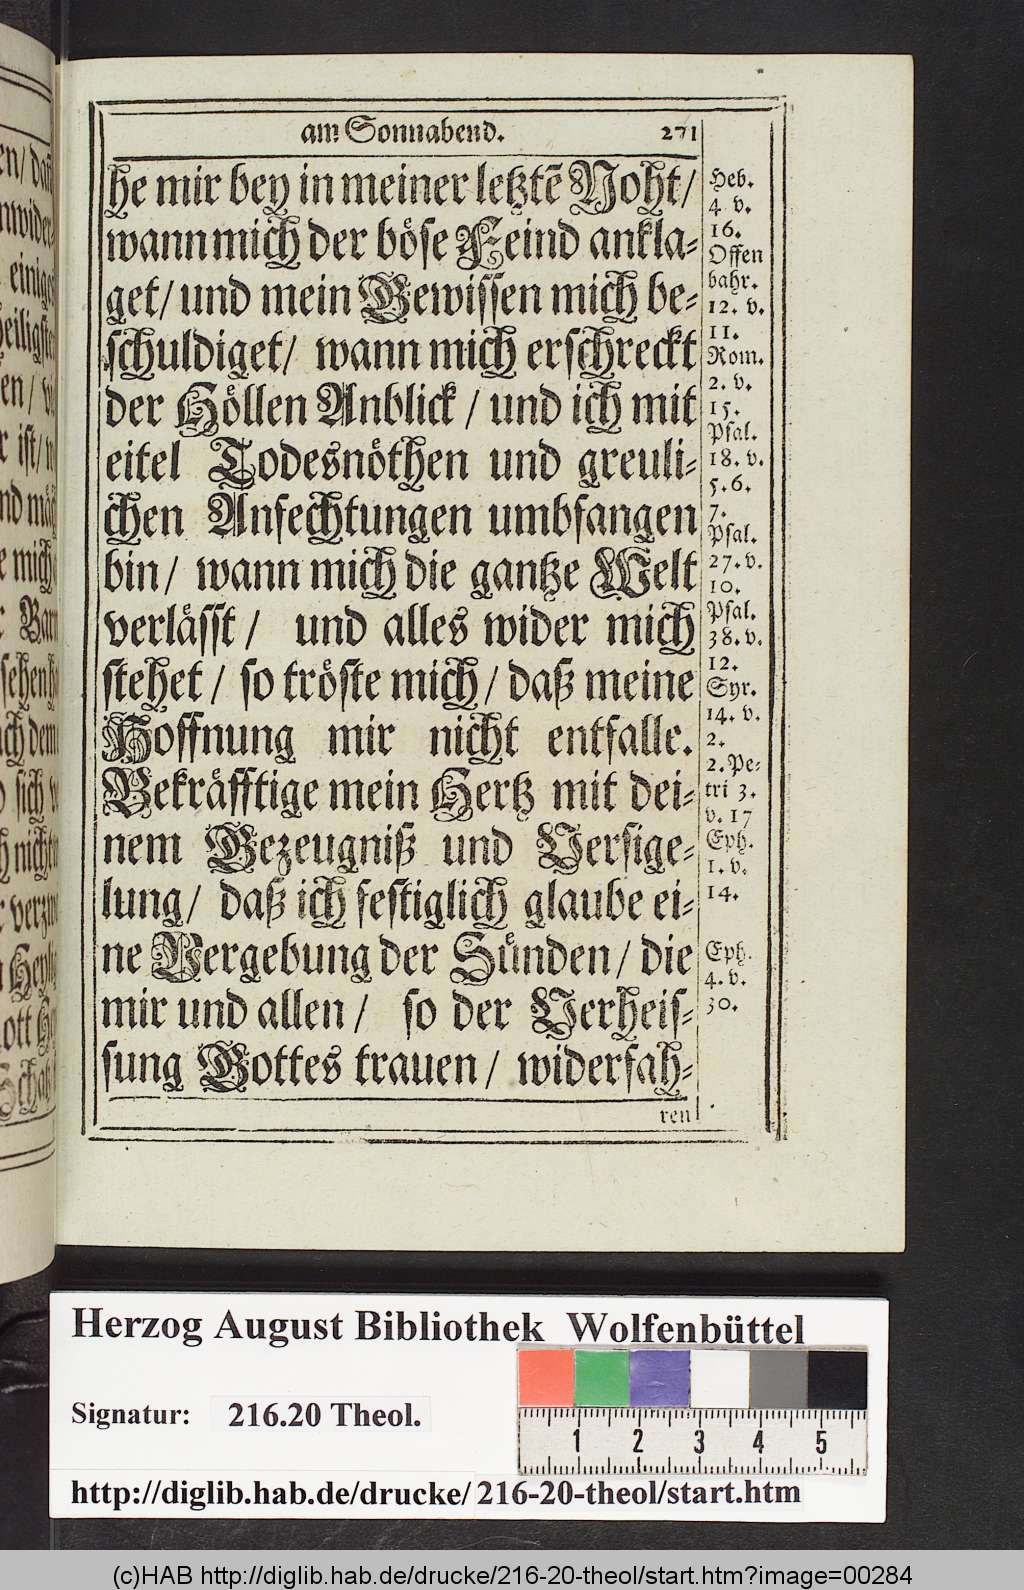 am Sonnabend. 271
he mir bey in meiner letztē Noht/
wann mich der böse Feind ankla-
get/ und mein Gewissen mich be-
schuldiget/ wann mich erschreckt
der Höllen Anblick / und ich mit
eitel Todesnöthen und greuli-
chen Anfechtungen umbfangen
bin/ wann mich die gantze Welt
verlässt / und alles wider mich
stehet / so tröste mich / daß meine
Hoffnung mir nicht entfalle.
Bekräfftige mein Hertz mit dei-
nem Gezeugniß und Versige-
lung/ daß ich festiglich glaube ei-
ne Vergebung der Sünden / die
mir und allen / so der Verheis-
sung Gottes trauen / widerfah-
ren
Heb.
4 v.
16.
Offen
bahr.
12. v.
11.
Rom.
2. v.
15.
Psal.
18. v.
5.6.
7.
Psal.
27. v.
10.
Psal.
38. v.
12.
Syr.
14. v.
2.
2. Pe-
tri 3.
v. 17
Eph.
1. v.
14.
Eph.
4. v.
30.
Herzog August Bibliothek Wolfenbüttel
Signatur: 216.20 Theol.
1 2 3 4 5
http://diglib.hab.de/drucke/ 216-20-theol/start.htm
(c)HAB http://diglib.hab.de/drucke/216-20-theol/start.htm?image=00284